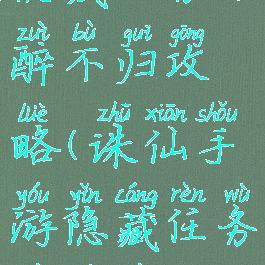 zuì bù guī gōng
醉不归攻
lüè zhū xiān shǒu
略(诛仙手
yóu yǐn cáng rèn wù
游隐藏任务